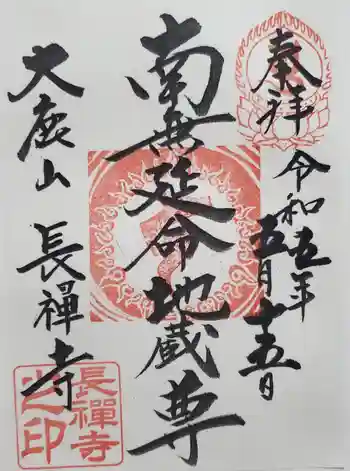 奉拝
令和五年
五月十五日
南無延命地蔵尊
大鹿山
長禅寺
長禪寺
之印